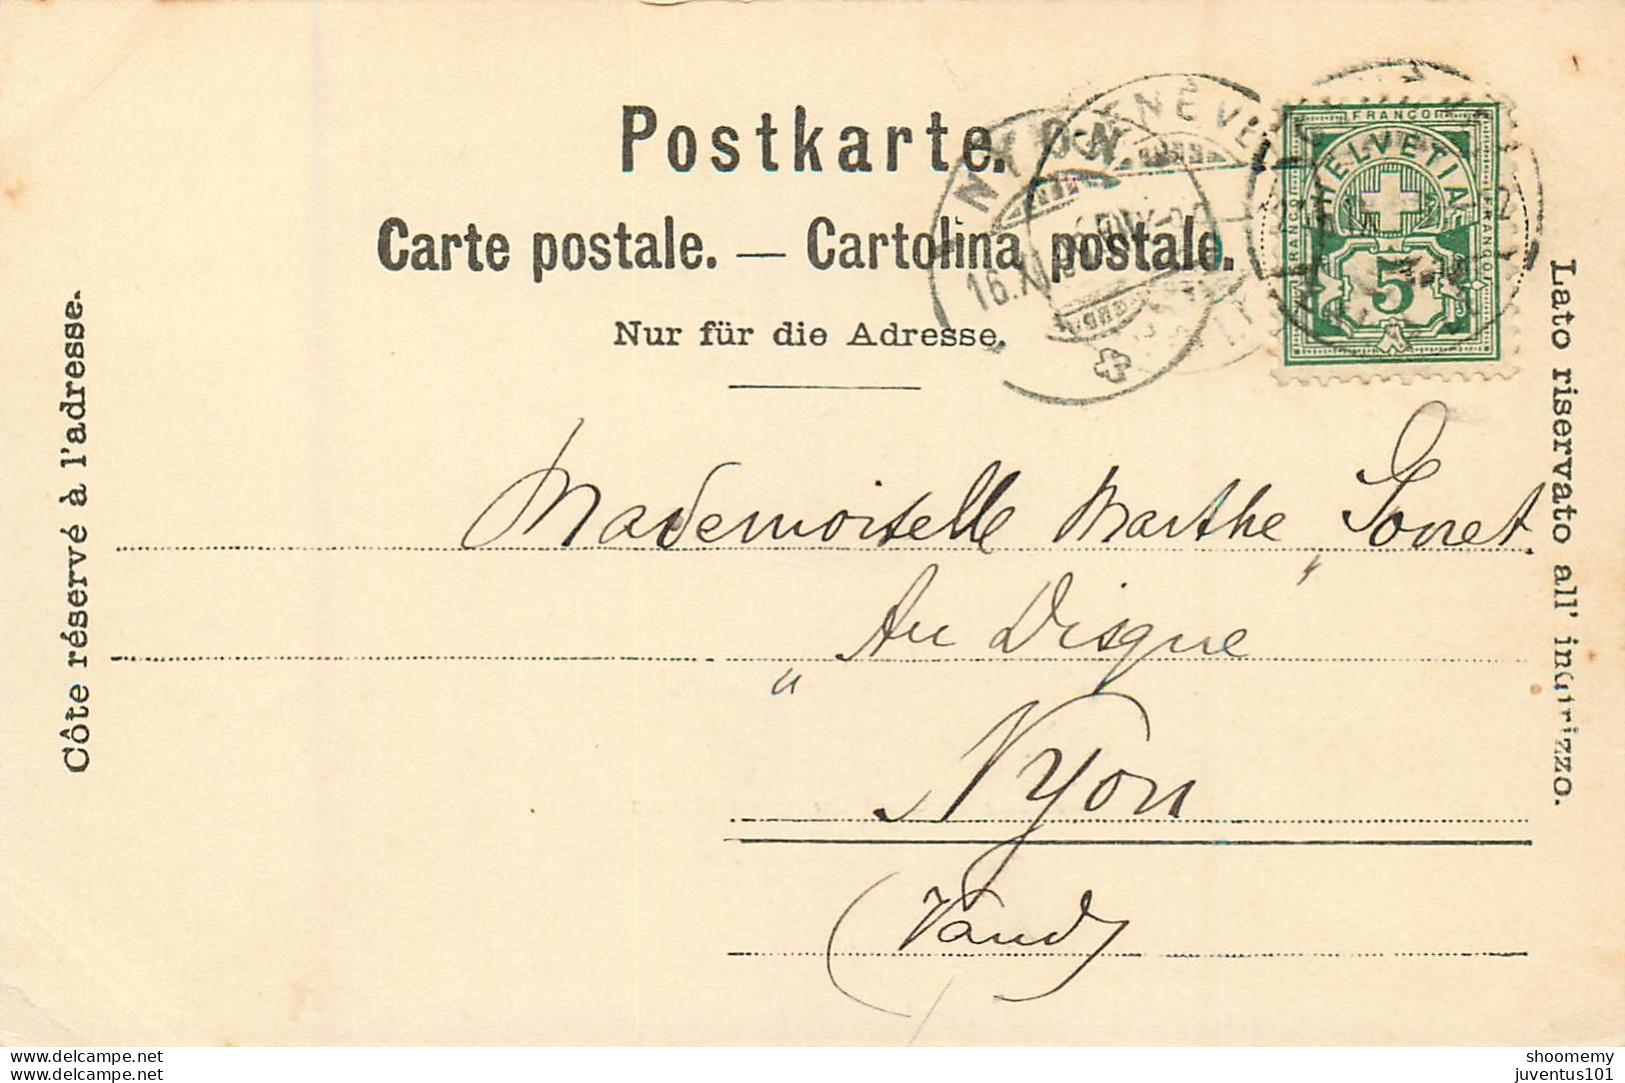 Postkarte.
Carte postale. — Cartolina postale.
Nur für die Adresse.
Côte réservé à l'adresse.
Lato riservato all' indirizzo.
NYON
16.X
GENÈVE
FRANCO
HELVETIA
FRANCO
FRANCO
5
Mademoiselle Marthe
"Au Disque"
Nyon
(Vaud)
delcampe.net
shoomemy
juventus101